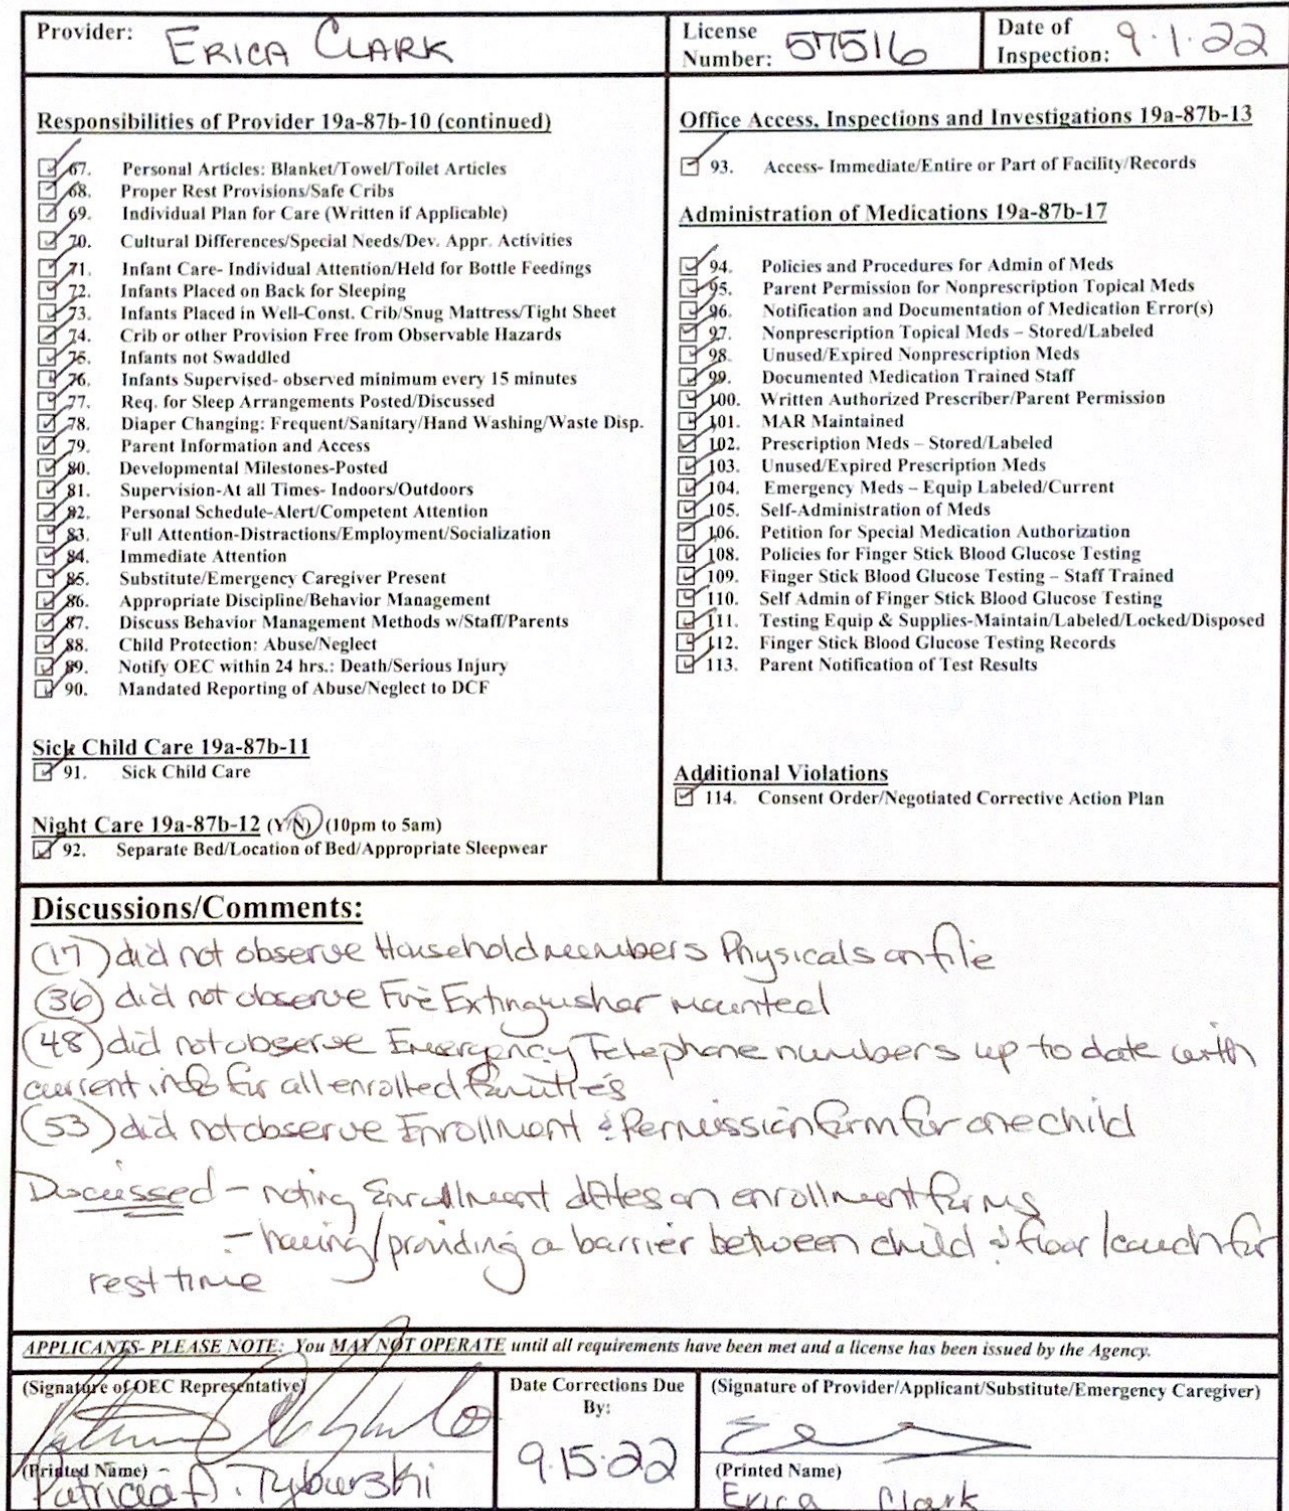 Provider: ERICA CLARK
License Number: 57516
Date of Inspection: 9.1.22
Responsibilities of Provider 19a-87b-10 (continued)
67. Personal Articles: Blanket/Towel/Toilet Articles
68. Proper Rest Provisions/Safe Cribs
69. Individual Plan for Care (Written if Applicable)
70. Cultural Differences/Special Needs/Dev. Appr. Activities
71. Infant Care- Individual Attention/Held for Bottle Feedings
72. Infants Placed on Back for Sleeping
73. Infants Placed in Well-Const. Crib/Snug Mattress/Tight Sheet
74. Crib or other Provision Free from Observable Hazards
75. Infants not Swaddled
76. Infants Supervised- observed minimum every 15 minutes
77. Req. for Sleep Arrangements Posted/Discussed
78. Diaper Changing: Frequent/Sanitary/Hand Washing/Waste Disp.
79. Parent Information and Access
80. Developmental Milestones-Posted
81. Supervision-At all Times- Indoors/Outdoors
82. Personal Schedule-Alert/Competent Attention
83. Full Attention-Distractions/Employment/Socialization
84. Immediate Attention
85. Substitute/Emergency Caregiver Present
86. Appropriate Discipline/Behavior Management
87. Discuss Behavior Management Methods w/Staff/Parents
88. Child Protection: Abuse/Neglect
89. Notify OEC within 24 hrs.: Death/Serious Injury
90. Mandated Reporting of Abuse/Neglect to DCF
Sick Child Care 19a-87b-11
91. Sick Child Care
Night Care 19a-87b-12 (Y/N) (10pm to 5am)
92. Separate Bed/Location of Bed/Appropriate Sleepwear
Office Access, Inspections and Investigations 19a-87b-13
93. Access- Immediate/Entire or Part of Facility/Records
Administration of Medications 19a-87b-17
94. Policies and Procedures for Admin of Meds
95. Parent Permission for Nonprescription Topical Meds
96. Notification and Documentation of Medication Error(s)
97. Nonprescription Topical Meds – Stored/Labeled
98. Unused/Expired Nonprescription Meds
99. Documented Medication Trained Staff
100. Written Authorized Prescriber/Parent Permission
101. MAR Maintained
102. Prescription Meds – Stored/Labeled
103. Unused/Expired Prescription Meds
104. Emergency Meds – Equip Labeled/Current
105. Self-Administration of Meds
106. Petition for Special Medication Authorization
108. Policies for Finger Stick Blood Glucose Testing
109. Finger Stick Blood Glucose Testing – Staff Trained
110. Self Admin of Finger Stick Blood Glucose Testing
111. Testing Equip & Supplies-Maintain/Labeled/Locked/Disposed
112. Finger Stick Blood Glucose Testing Records
113. Parent Notification of Test Results
Additional Violations
114. Consent Order/Negotiated Corrective Action Plan
Discussions/Comments:
(17) did not observe Household members Physicals on file
(36) did not observe Fire Extinguisher mounted
(48) did not observe Emergency Telephone numbers up to date with
current info for all enrolled families
(53) did not observe Enrollment & Permission form for one child
Discussed - noting Enrollment dates on enrollment forms
- having/providing a barrier between child & floor/couch for
rest time
APPLICANTS- PLEASE NOTE: You MAY NOT OPERATE until all requirements have been met and a license has been issued by the Agency.
(Signature of OEC Representative)
(Printed Name)
Patricia A. Tyburski
Date Corrections Due
By:
9.15.22
(Signature of Provider/Applicant/Substitute/Emergency Caregiver)
(Printed Name)
Erica Clark